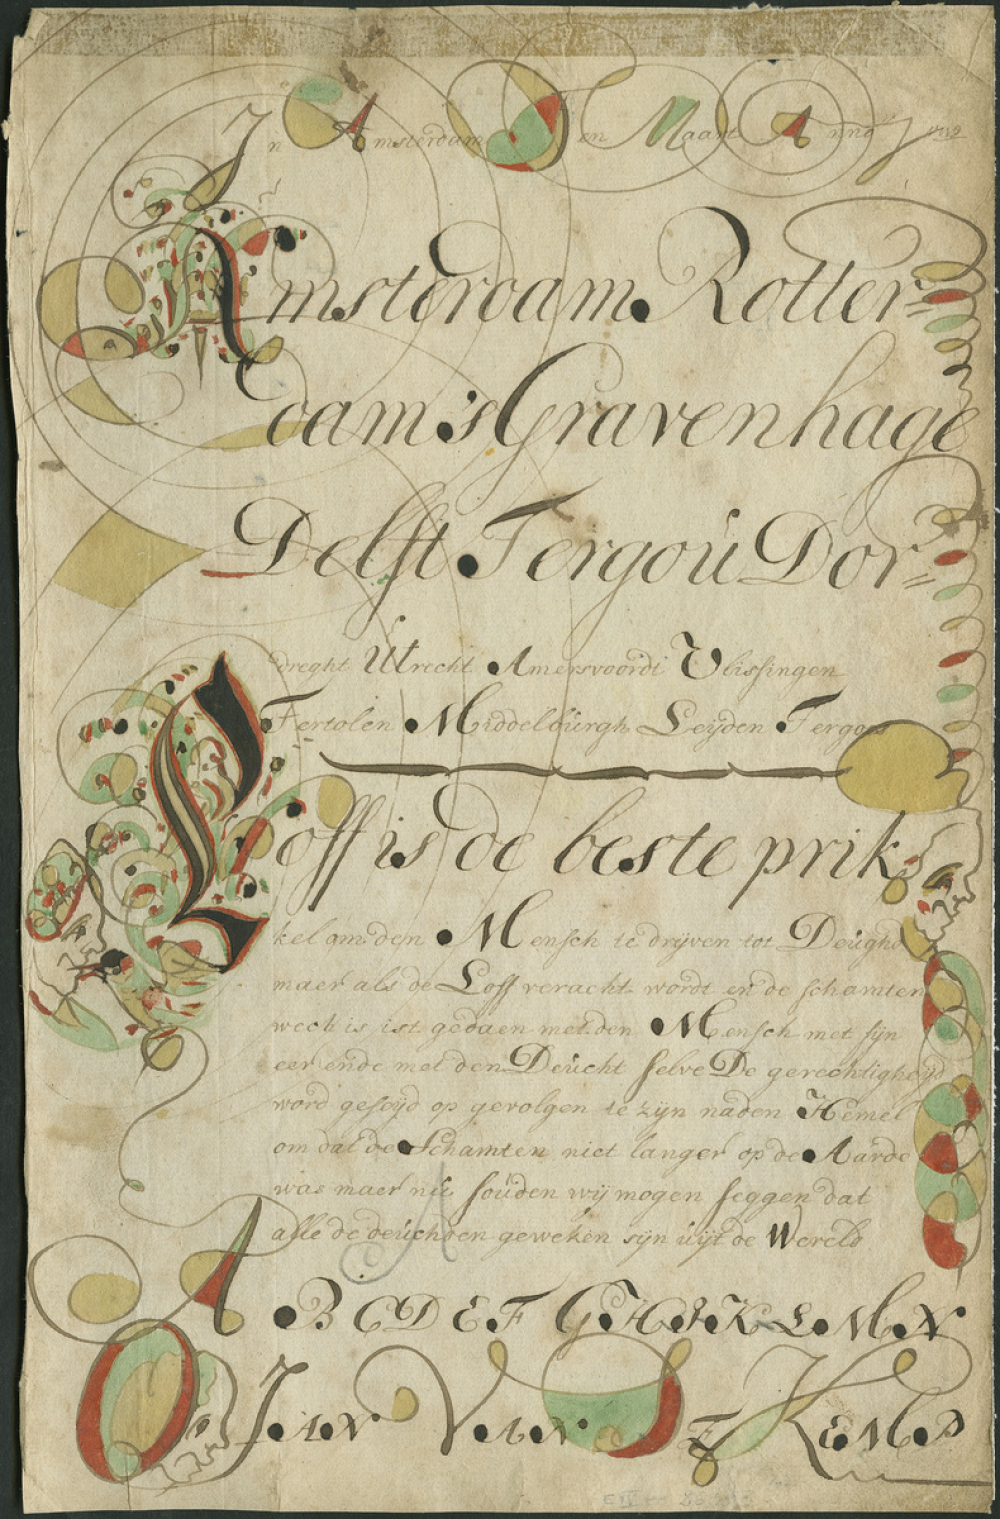 In Amsterdam Den Maart Anno
Amsterdam Rotter=
dam 's Gravenhage
Delft Tergoú Dor=
dreght Utrecht Amersvoordt Vlissingen
Tertolen Middelbúrgh Leÿden Tergoes
Loff is de beste prik
kel om den Mensch te drijven tot Deúghd
maer als de Loff veracht wordt en de schamten
wech is ist gedaen met den Mensch met sijn
eer ende met den Deúcht selve De gerechtigheÿd
word geseÿd op gevolgen te zijn na den Hemel
om dat de Schamten niet langer op de Aarde
was maer nú soúden wij mogen seggen dat
alle de deúchden geweken sijn úÿt de Wereld
A B C D E F G H I K L M N
O JAN VAN DE KEMP